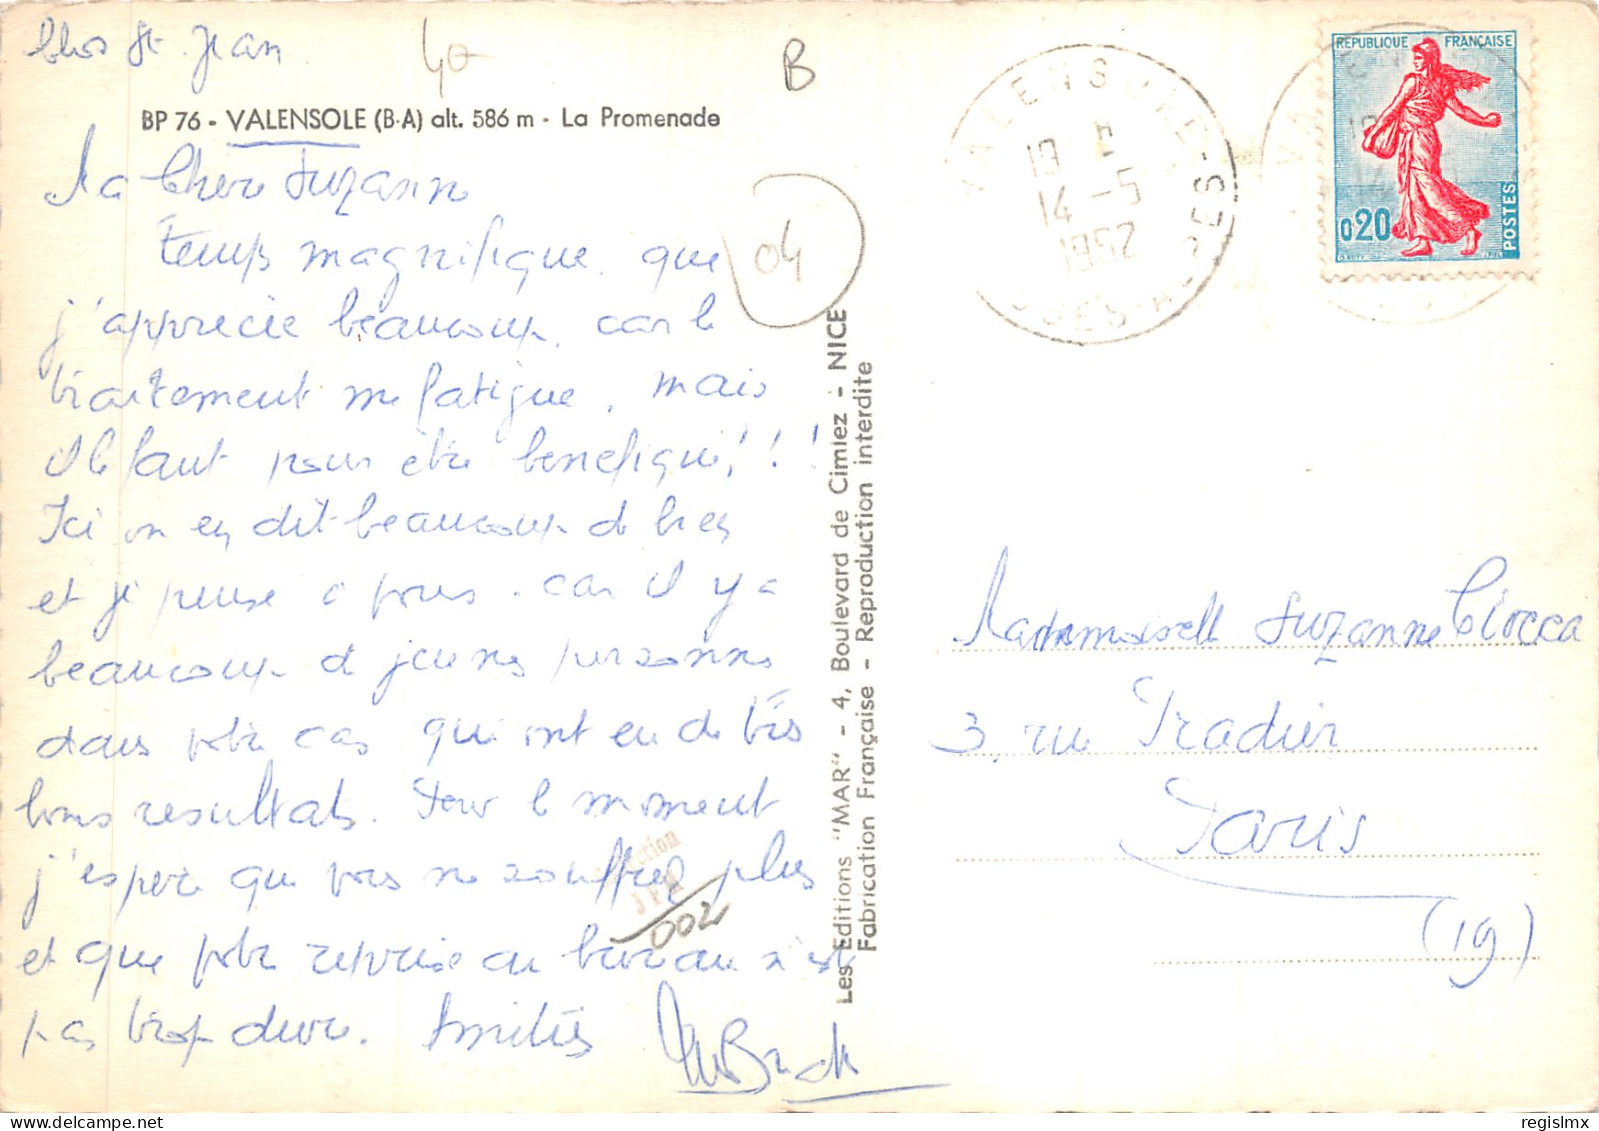 Clos St. Jean
40
B
BP 76 - VALENSOLE (B-A) alt. 586 m - La Promenade
Ma Chere Suzanne
temps magnifique que
j'apprecie beaucoup, car le
traitement me fatigue, mais
il le faut pour être benefique!!!
Ici on en dit beaucoup de bien
et je pense a vous. car il y a
beaucoup de jeunes personnes
dans votre cas qui ont eu de très
bons resultats. Pour le moment
j'espere que vous ne souffrez plus
et que votre reprise au bureau n'est
pas trop dure. Amitiés
04
002
Les Editions "MAR" - 4, Boulevard de Cimiez - NICE
Fabrication Française - Reproduction interdite
VALENSOLE
14 -5
1962
REPUBLIQUE FRANÇAISE
0,20
POSTES
Mademoiselle Suzanne Ciocca
3 rue Pradier
Paris
(19)
regislmx